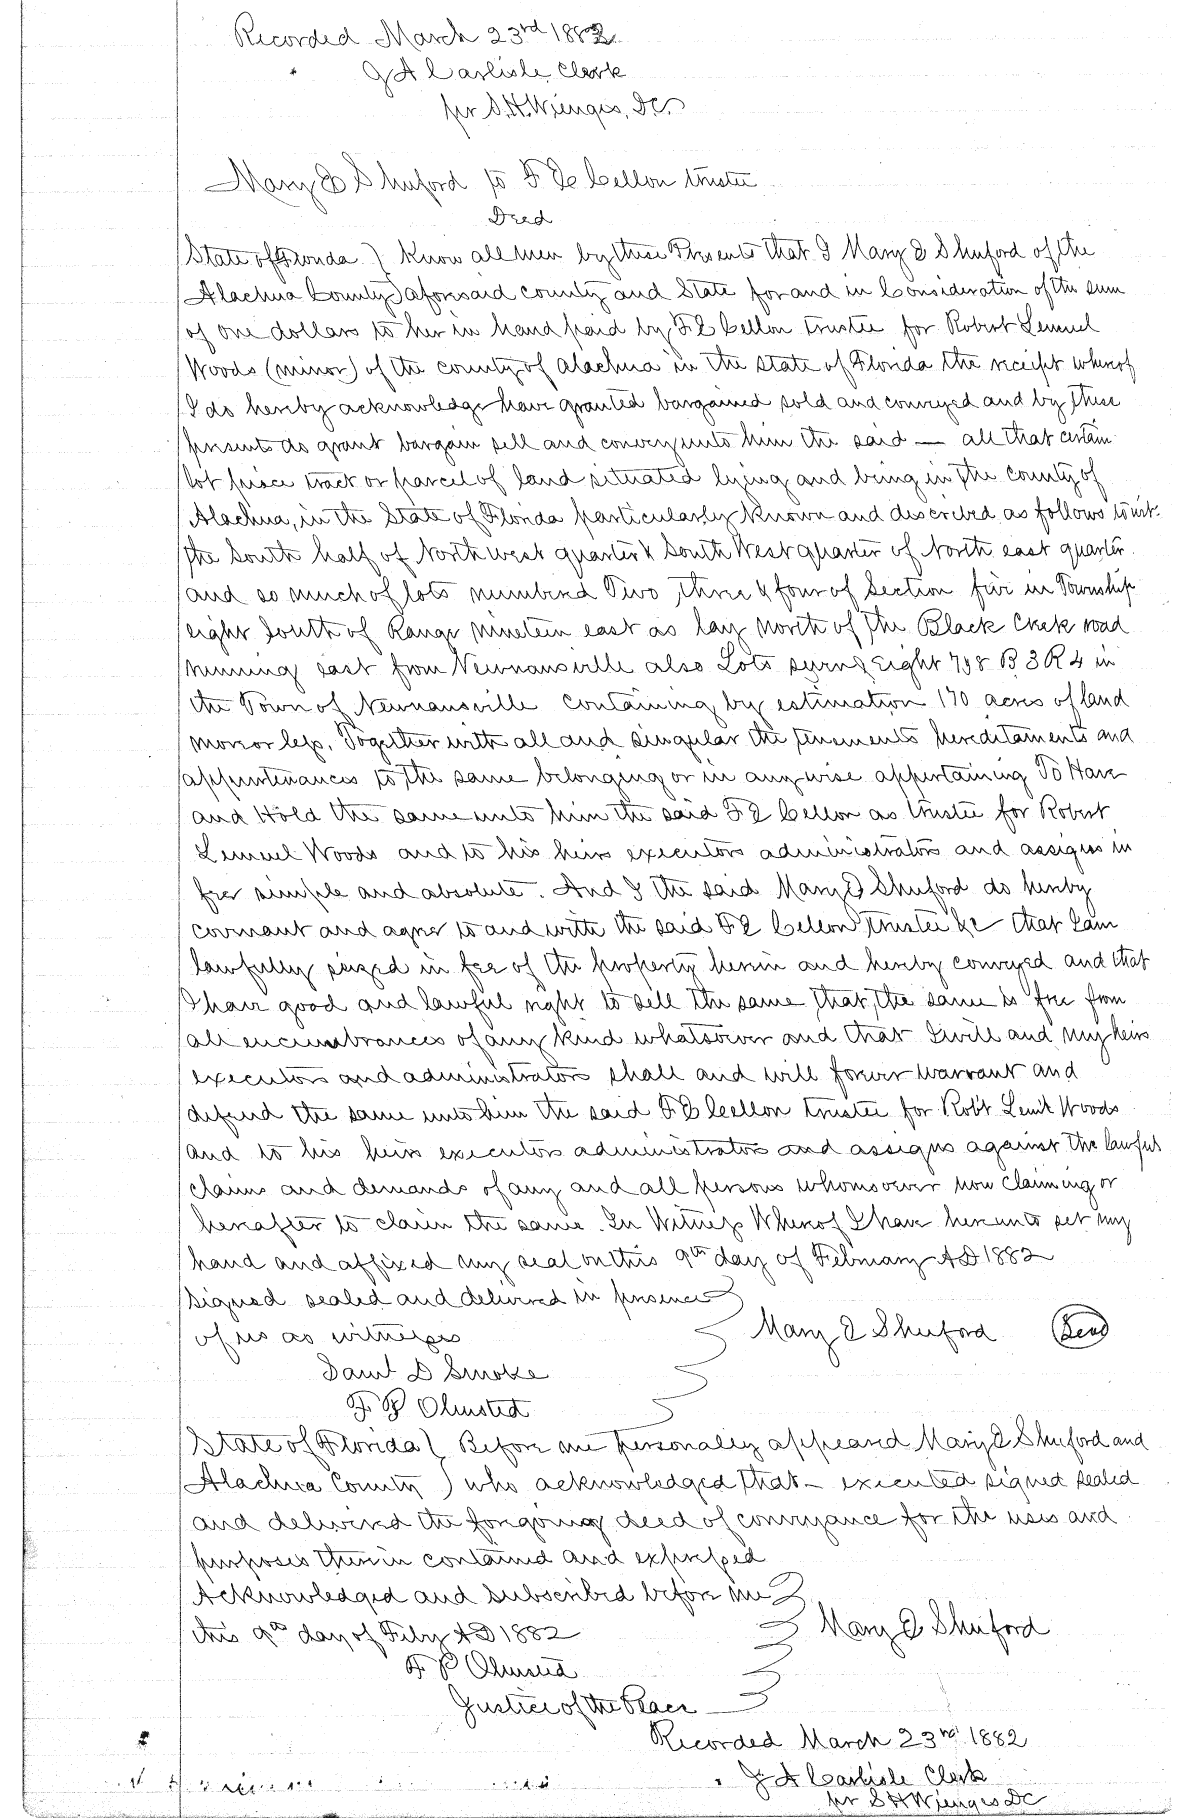 Recorded March 23rd 1882
J A Carlisle Clerk
per S. H. Wienges, D.C.
Mary E Shuford to F E Cellon trustee
Deed
State of Florida } Know all men by these Presents that I Mary E Shuford of the
Alachua County } aforesaid county and State for and in Consideration of the sum
of one dollars to her in hand paid by F E Cellon trustee for Robert Lemuel
Woods (minor) of the county of Alachua in the State of Florida the receipt whereof
I do hereby acknowledge have granted bargained sold and conveyed and by these
presents do grant bargain sell and convey unto him the said — all that certain
lot piece tract or parcel of land situated lying and being in the county of
Alachua, in the State of Florida particularly known and described as follows to wit.
the South half of North west quarter & South West quarter of North east quarter
and so much of lots numbered Two, three & four of Section five in Township
eight South of Range nineteen east as lay north of the Black Creek road
running east from Newnansville also Lots seven & Eight 7 & 8 B 3 R 4 in
the Town of Newnansville containing by estimation 170 acres of land
more or less, Together with all and singular the tenements hereditaments and
appurtenances to the same belonging or in any wise appertaining To Have
and Hold the same unto him the said F E Cellon as trustee for Robert
Lemuel Woods and to his heirs executors administrators and assigns in
fee simple and absolute. And I the said Mary E Shuford do hereby
covenant and agree to and with the said F E Cellon trustee &c that I am
lawfully seized in fee of the property herein and hereby conveyed and that
I have good and lawful right to sell the same, that the same is free from
all encumbrances of any kind whatsoever and that I will and my heirs
executors and administrators shall and will forever warrant and
defend the same unto him the said F E Cellon trustee for Robt Leml Woods
and to his heirs executors administrators and assigns against the lawful
claims and demands of any and all persons whomsoever now claiming or
hereafter to claim the same. In Witness Whereof I have hereunto set my
hand and affixed my seal on this 9th day of February A D 1882
Signed sealed and delivered in presence
of us as witnesses Mary E Shuford Seal
Danl D Smoke
F. P Olmsted
State of Florida } Before me personally appeared Mary E Shuford and
Alachua County } who acknowledged that — executed signed sealed
and delivered the foregoing deed of conveyance for the uses and
purposes therein contained and expressed
Acknowledged and subscribed before me
this 9th day of Feby A D 1882 Mary E Shuford
F P Olmsted
Justice of the Peace
Recorded March 23rd 1882
J A Carlisle Clerk
per S H Wienges DC